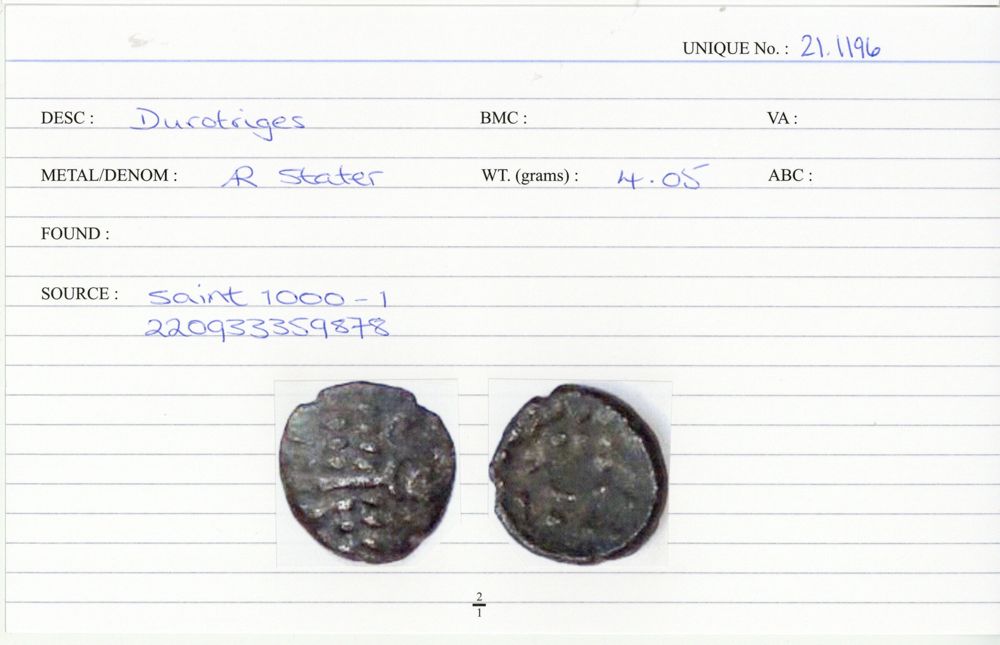 UNIQUE No. : 21.1196
DESC : Durotriges BMC : VA :
METAL/DENOM : AR Stater WT. (grams) : 4.05 ABC :
FOUND :
SOURCE : Saint 1000-1
220933359878
2
1